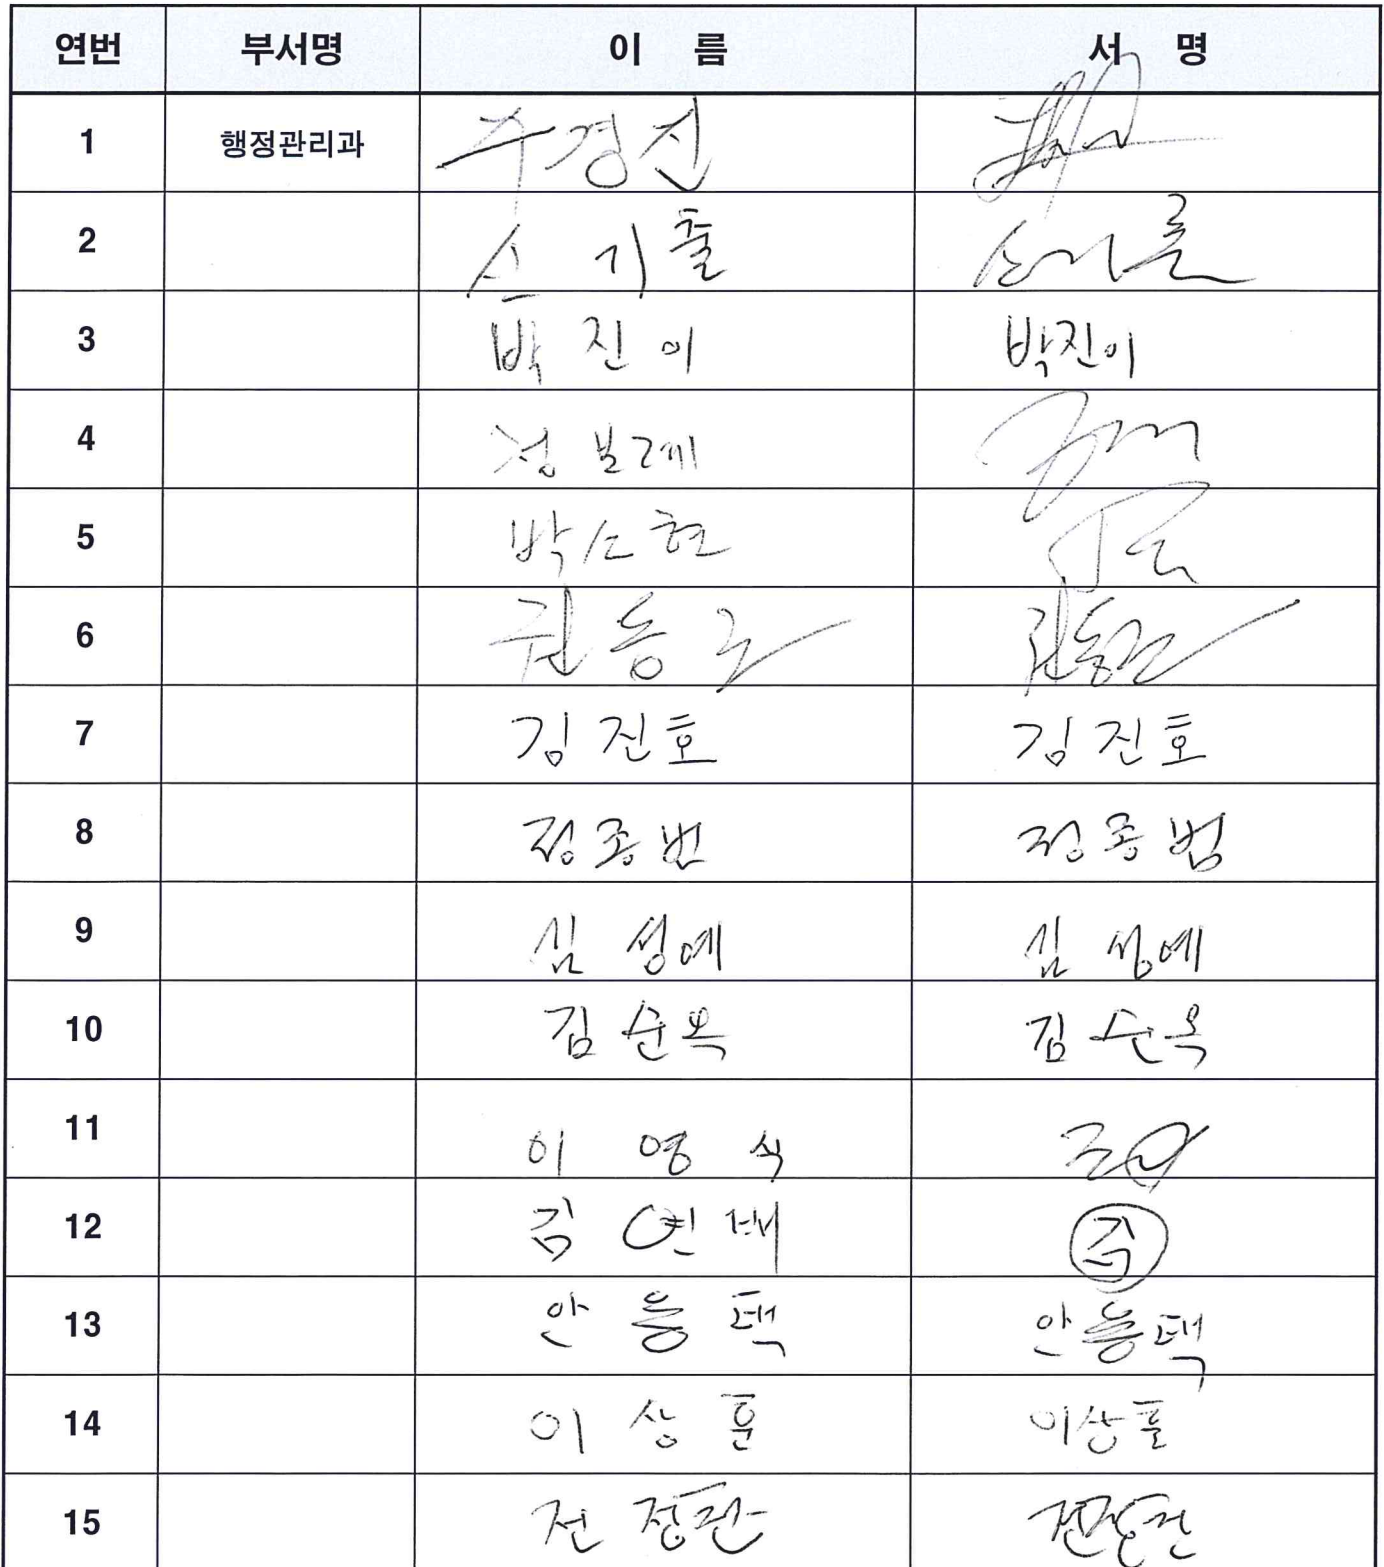 연번 부서명 이 름 서 명
1 행정관리과 주경진
2 신기출
3 박진이 박진이
4 정보례
5 박소현
6 권동
7 김진호 김진호
8 정종범 정종범
9 심성예 심성예
10 김순옥 김순옥
11 이영식
12 김연배
13 안용택 안용택
14 이상훈 이상훈
15 전정관